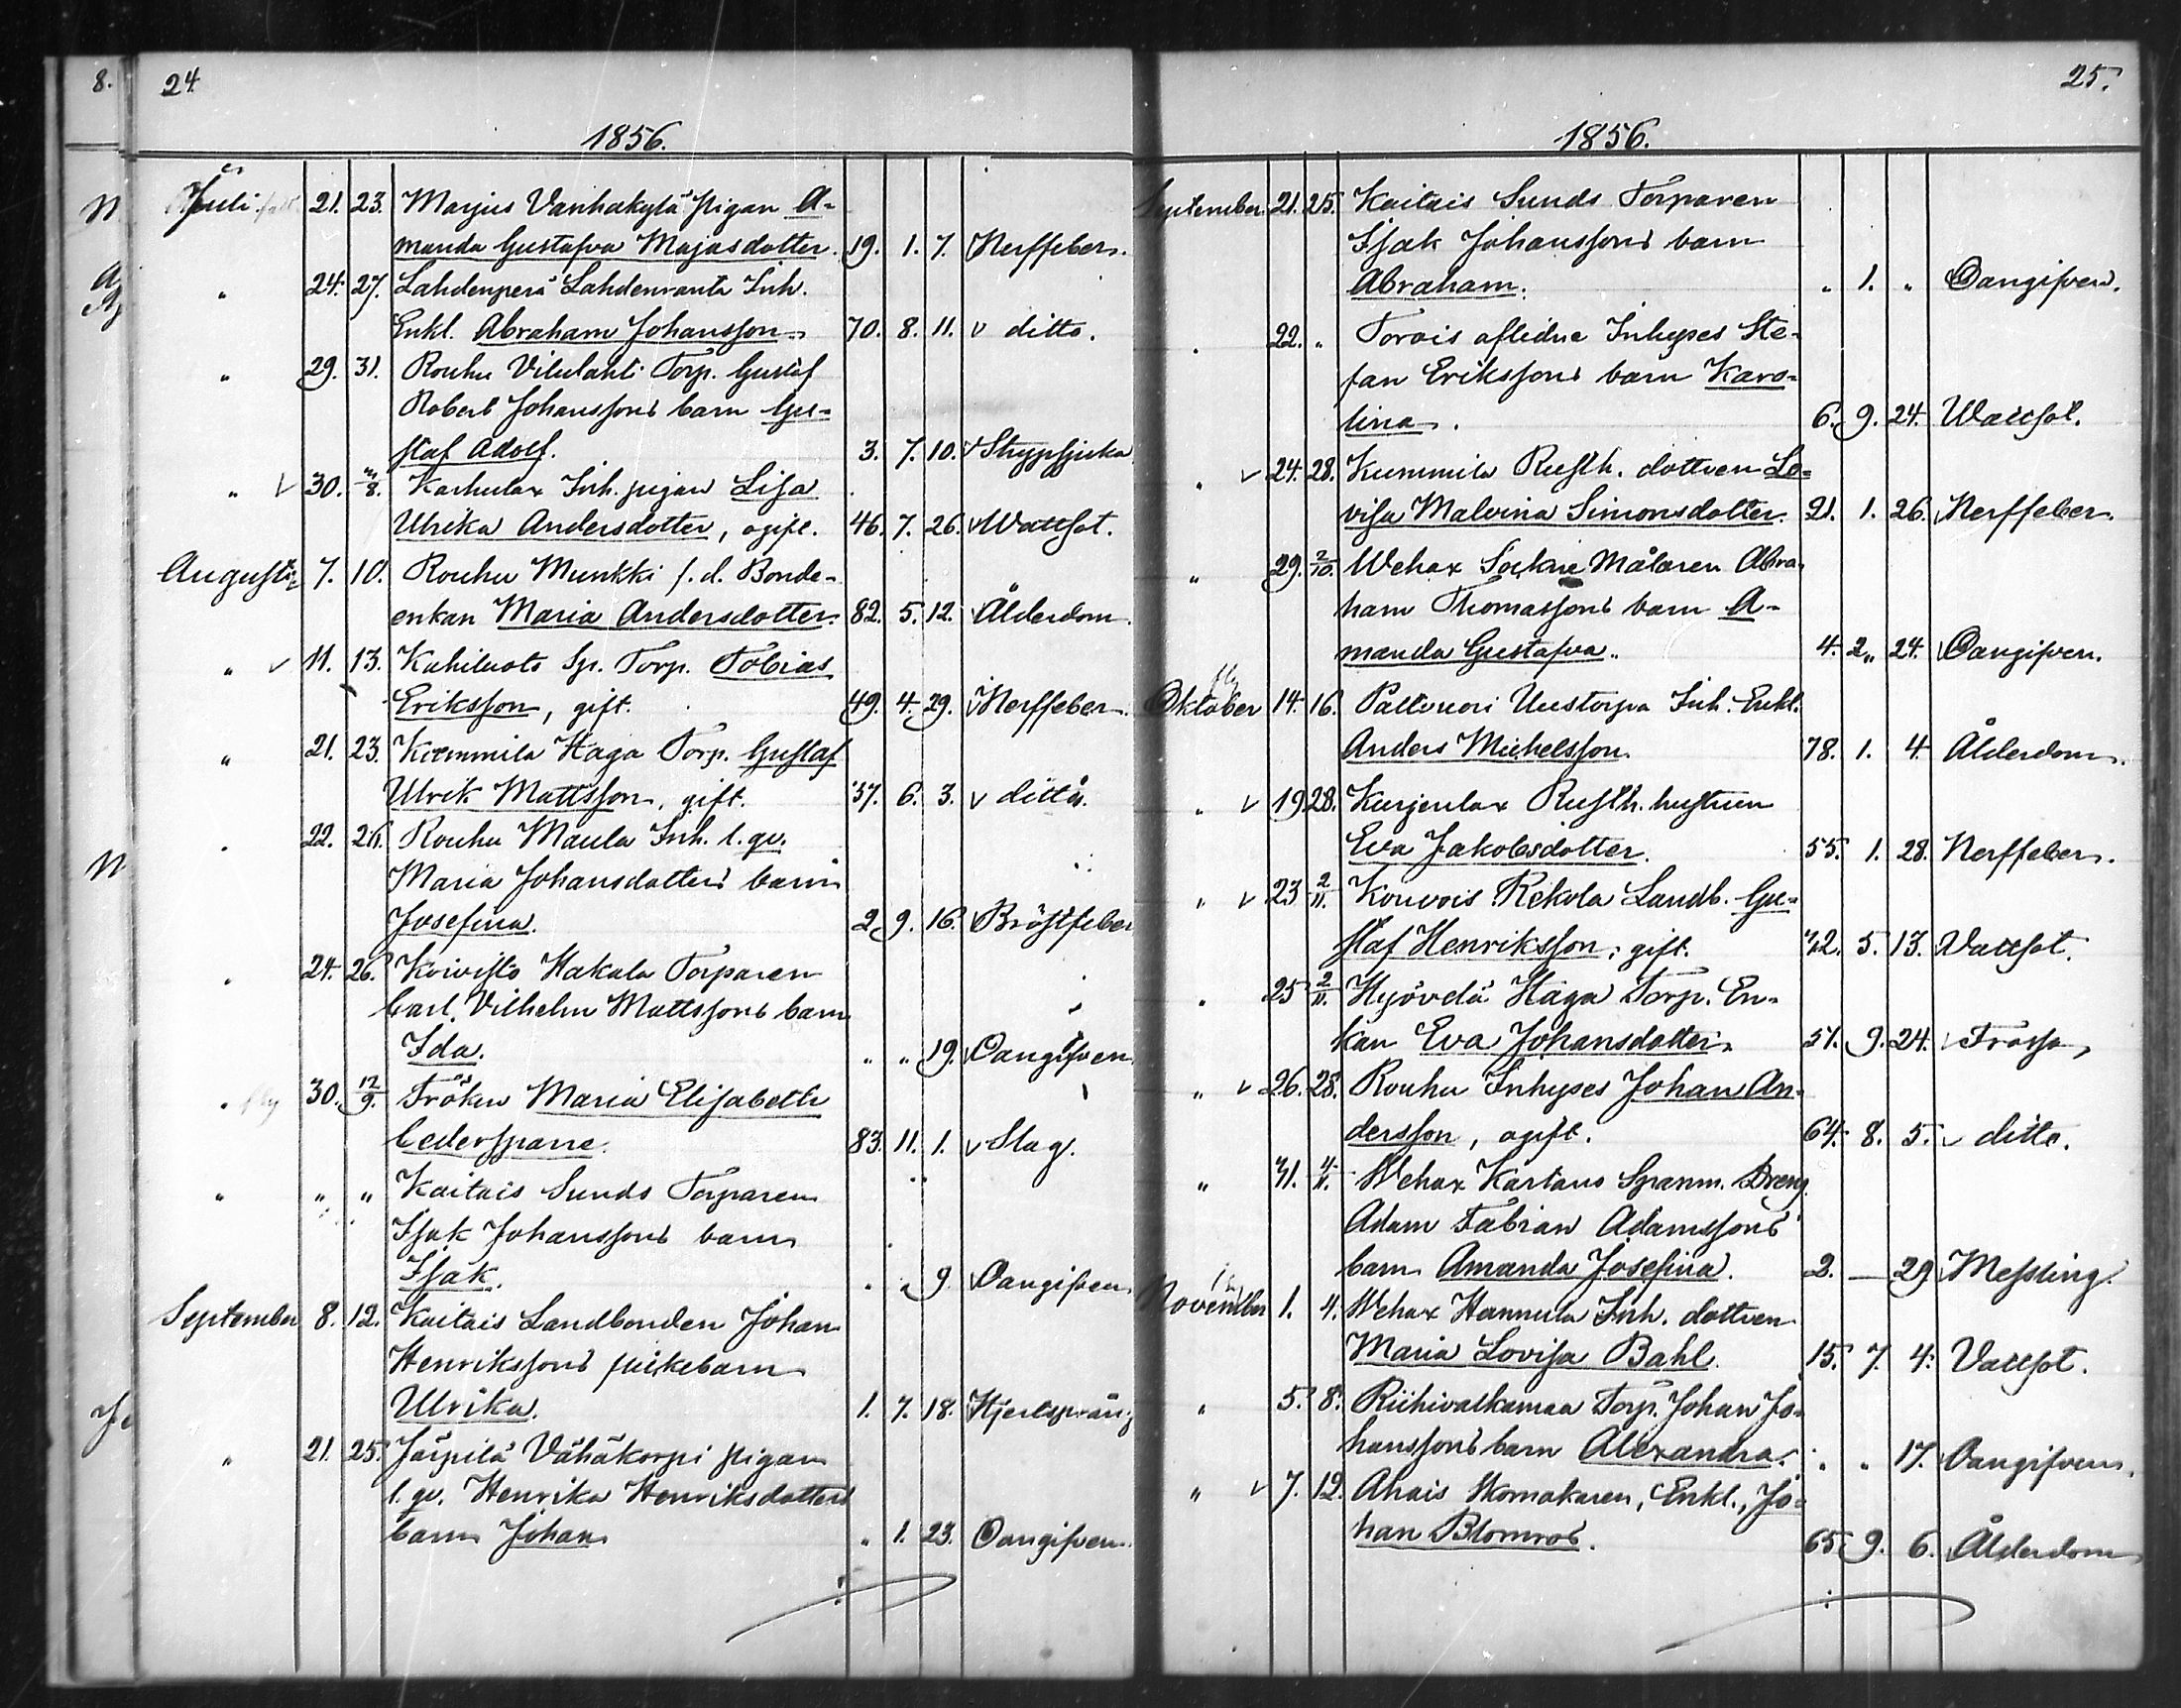 8.
24.
1856.
Juli 21. 23. Marjus Vanhakylä pigan A-
manda Gustafva Majasdotter. 19. 1. 7. Nerffeber.
" 24. 27. Lahdenperä Lahdenranta Inh.
Enkl. Abraham Johansson. 70. 8. 11. v ditto.
" 29. 31. Rouhu Vilulahti Torp. Gustaf
Robert Johanssons barn Gu-
staf Adolf. 3. 7. 10. v Strypsjuka
" v 30. 3/8. Karhula Inh. pigan Lisa
Ulrika Andersdotter, ogift. 46. 7. 26. v Wattsot.
Augusti 7. 10. Rouhu Munkki f. d. Bonde-
enkan Maria Andersdotter. 82. 5. 12. v Ålderdom.
" v 11. 13. Kahiluoto Sp. Torp. Tobias
Eriksson, gift. 49. 4. 29. v Nerffeber.
" 21. 23. Kummila Haga Torp. Gustaf
Ulrik Mattsson, gift. 37. 6. 3. v ditto.
" 22. 26. Rouhu Maula Inh. l. qv.
Maria Johansdotters barn
Josefina. 2 9. 16. v Bröstfeber
" 24. 26. Koivisto Hakala Torparen
Carl Vilhelm Mattssons barn
Ida. " " 19. v Oangifven.
" 30. 12/9. Fröken Maria Elisabeth
Cederspare. 83. 11. 1. v Slag.
" " " Kaitais Sunds Torparen
Isak Johanssons barn
Isak. " " 9. v Oangifven.
September 8. 12. Kaitais Landbonden Johan
Henrikssons pickebarn
Ulrika. 1. 7. 18. Hjertsprång
" 21. 25. Järpilä Vähäkorpi pigan
l. qv. Henrika Henriksdotters
barn Johan " 1. 23. Oangifven.
25.
1856.
September 21. 25. Kaitais Sunds Torparen
Isak Johanssons barn
Abraham. " 1. " Oangifven.
" 22. " Torois aflidne Inhyses Ste-
fan Erikssons barn Karo-
lina. 6. 9. 24. Wattsot.
" v 24. 28. Kummila Rusth. dottren Lo-
visa Malvina Simonsdotter. 21. 1. 26. Nerffeber.
" 29. 2/10. Wehax Sockne Målaren Abra-
ham Thomassons barn A-
manda Gustafva. 4. 2. 24. v Oangifven.
Oktober 14. 16. Paltvuori Uustorpa Inh. Enkl.
Anders Michelsson. 78. 1. 4. Ålderdom.
" v 19 28. Kurjenlax Rusth. hustrun
Eva Jakobsdotter. 55. 1. 28. Nerffeber.
" v 23 2/11. Kouvois Rekola Landb. Gu-
staf Henriksson, gift. 32. 5. 13. Vattsot.
" 25 2/11. Hyövdä Haga Torp. En-
kan Eva Johansdotter. 51. 9. 24. Frossa,
" v 26. 28. Rouhu Inhyses Johan An-
dersson, ogift. 64. 8. 5. v ditto.
" 31. 4/11. Wehax Kartano Spanm. Dreng.
Adam Fabian Adamssons
barn Amanda Josefina. 2. — 29 Messling.
November 1. 4. Wehax Hannula Inh. dottren
Maria Lovisa Bahl. 15. 7. 4. Vattsot.
" 5. 8. Riihivalkamaa Torp. Johan Jo-
hanssons barn Alexandra. " " 17. Oangifven.
" v 7. 12. Ahais Skomakaren, Enkl., Jo-
han Blomros. 65. 9. 6. Ålderdom